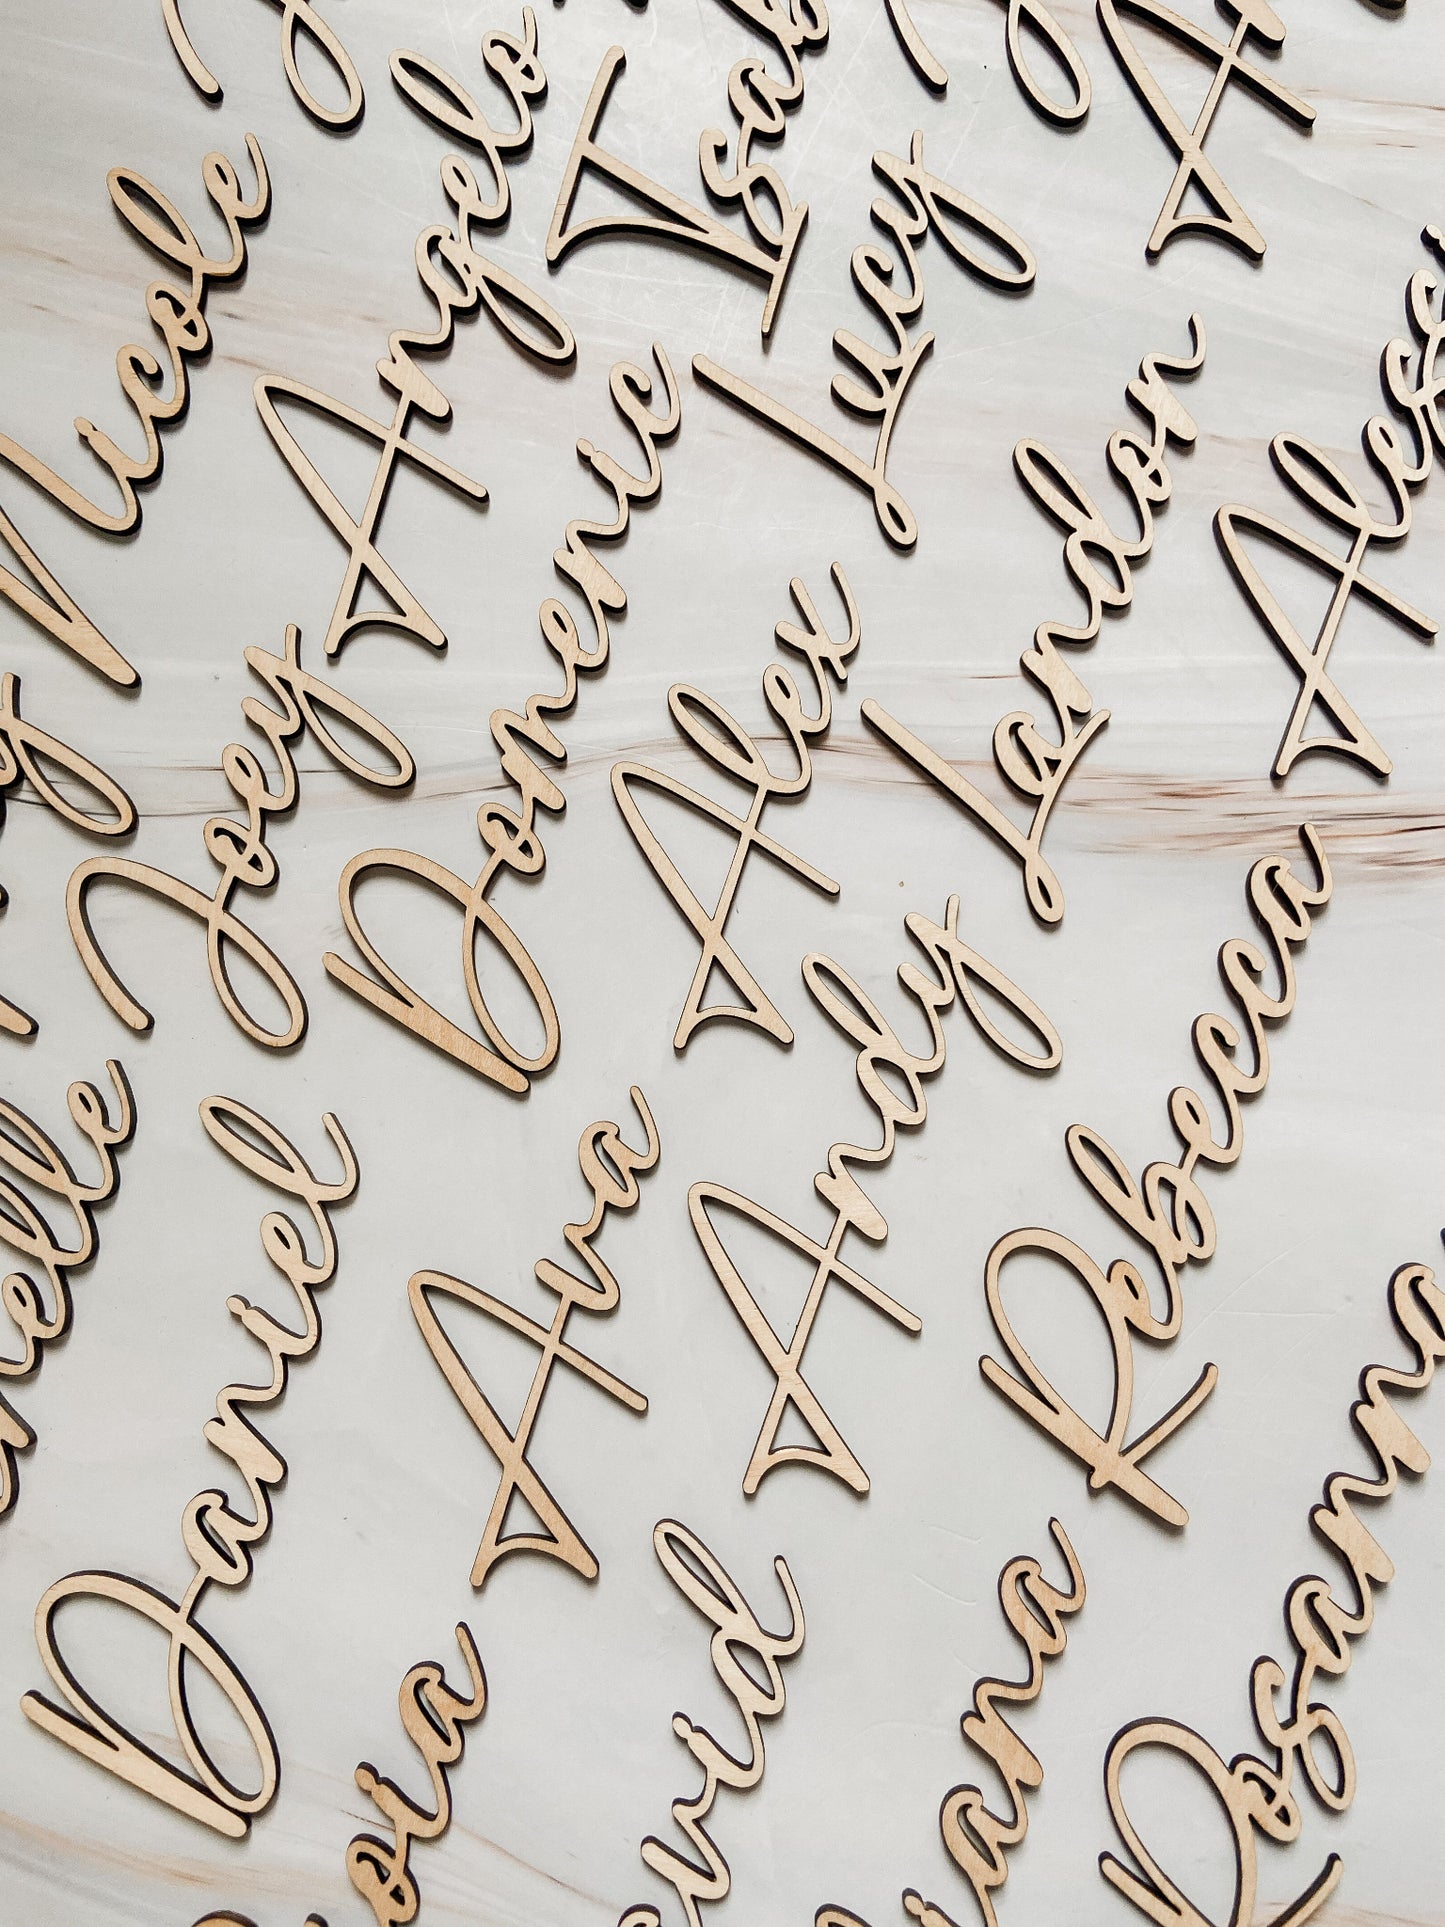 Nicole
Angelo
Isab
Lucy
Joey
Domenic
Alex
Landon
Aless
elle
Daniel
Ava
Andy
Rebecca
vid
ana
Rosanna